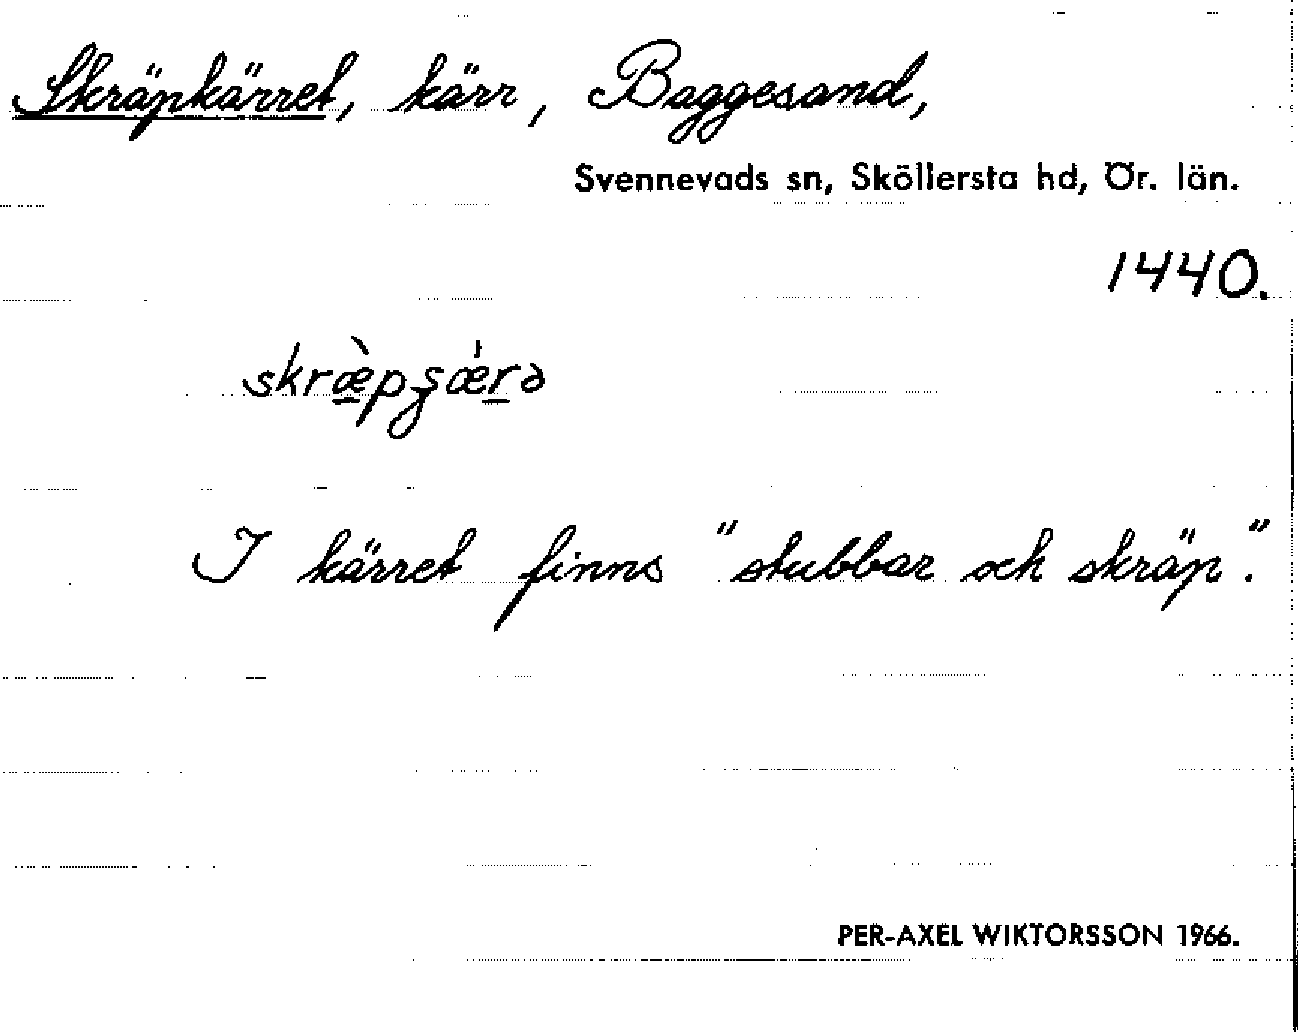 Skräpkärret, kärr, Baggesand,
Svennevads sn, Sköllersta hd, Ör. län.
1440.
skræ̠̀pʂǽ̠rə
I kärret finns "stubbar och skräp".
PER-AXEL WIKTORSSON 1966.